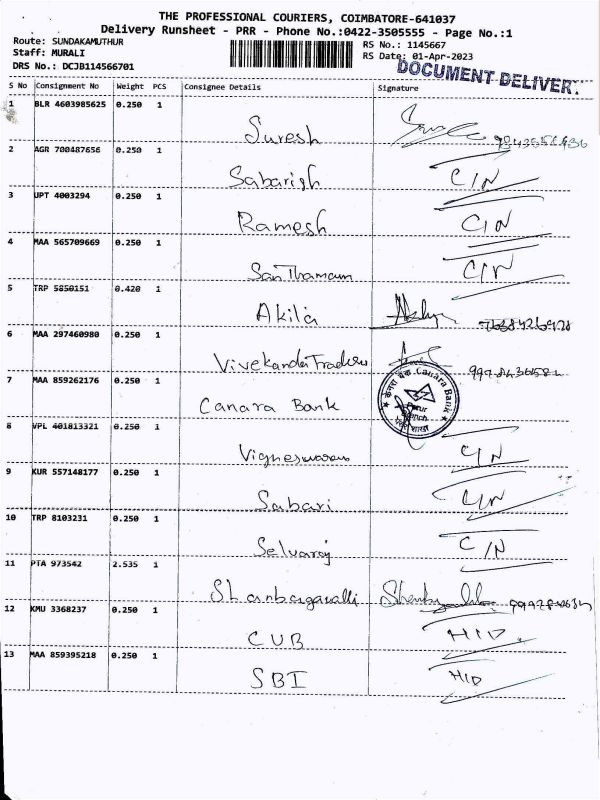 THE PROFESSIONAL COURIERS, COIMBATORE-641037
Delivery Runsheet - PRR - Phone No.:0422-3505555 - Page No.:1
Route: SUNDAKAMUTHUR
Staff: MURALI
DRS No.: DCJB114566701
RS No.: 1145667
RS Date: 01-Apr-2023
DOCUMENT DELIVER
S No Consignment No Weight PCS Consignee Details Signature
1 BLR 4603985625 0.250 1
Suresh
2 AGR 700487656 0.250 1
Sabarish C/N
3 UPT 4003294 0.250 1
Ramesh C/N
4 MAA 565709669 0.250 1
SanThamam C/N
5 TRP 5850151 0.420 1
Akila
6 MAA 297460980 0.250 1
Vivekanda Traders
7 MAA 859262176 0.250 1
Canara Bank
केनरा बैंक Canara Bank
Perur
Branch
शाखा
8 VPL 401813321 0.250 1
Vigneswaran C/N
9 KUR 557148177 0.250 1
Sabari C/N
10 TRP 8103231 0.250 1
Selvaraj C/N
11 PTA 973542 2.535 1
Shanbagavalli
12 KMU 3368237 0.250 1
CUB H/D
13 MAA 859395218 0.250 1
SBI H/D